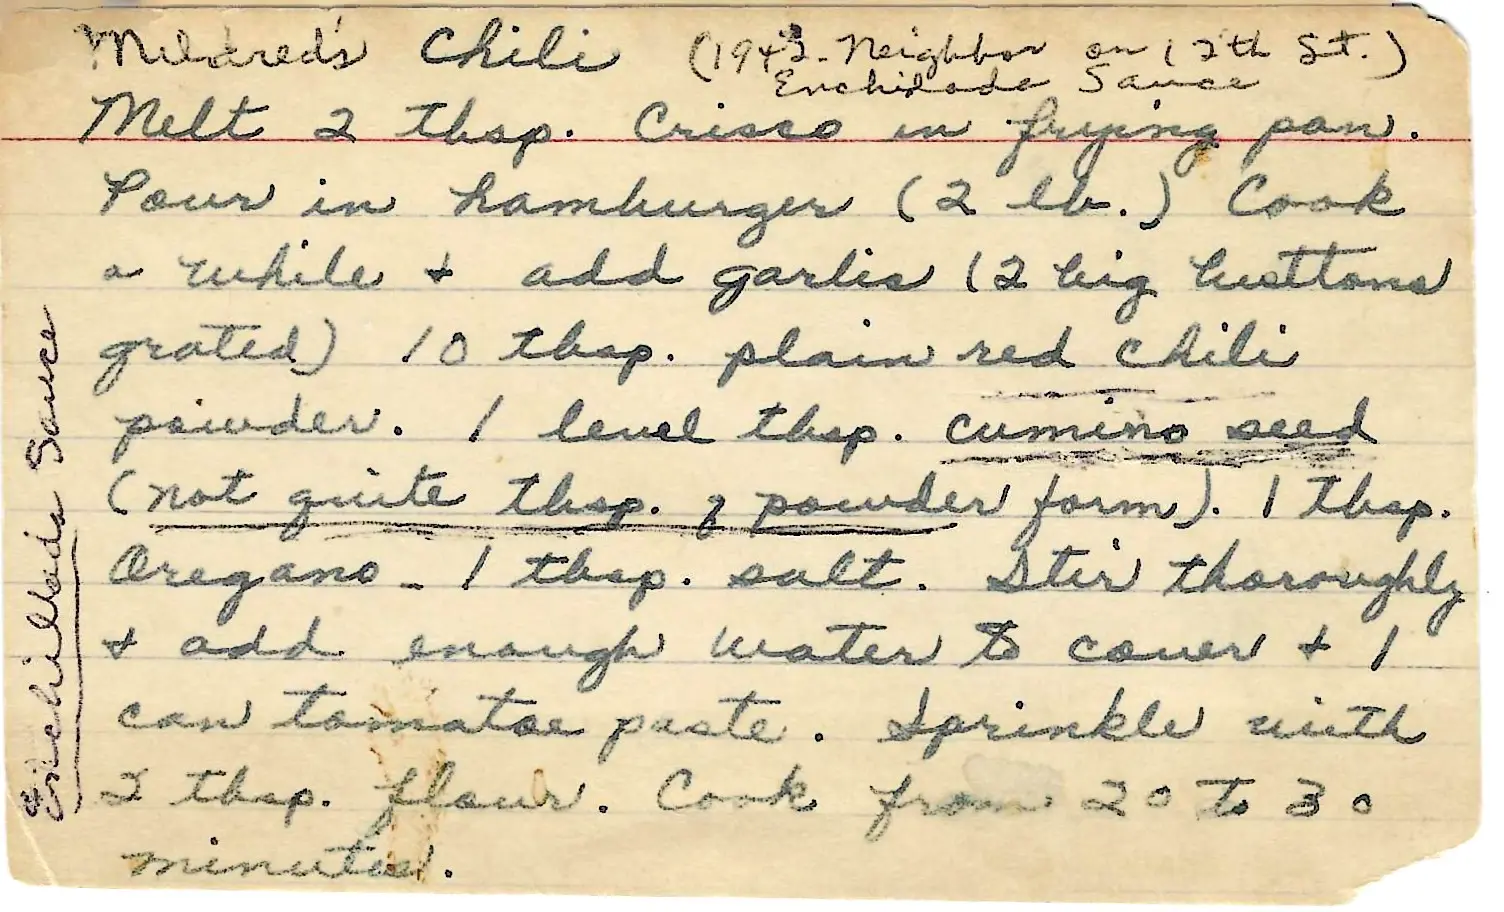 Mildred's Chili (1942 - Neighbor on 12th St.)
Enchilada Sauce
Melt 2 tbsp. Crisco in frying pan.
Pour in hamburger (2 lb.) Cook
a while + add garlic (2 big buttons
grated) 10 tbsp. plain red chili
powder. 1 level tbsp. cumino seed
(not quite tbsp. if powder form). 1 tbsp.
Oregano - 1 tbsp. salt. Stir thoroughly
+ add enough water to cover + 1
can tomatoe paste. Sprinkle with
2 tbsp. flour. Cook from 20 to 30
minutes.
Enchillada Sauce